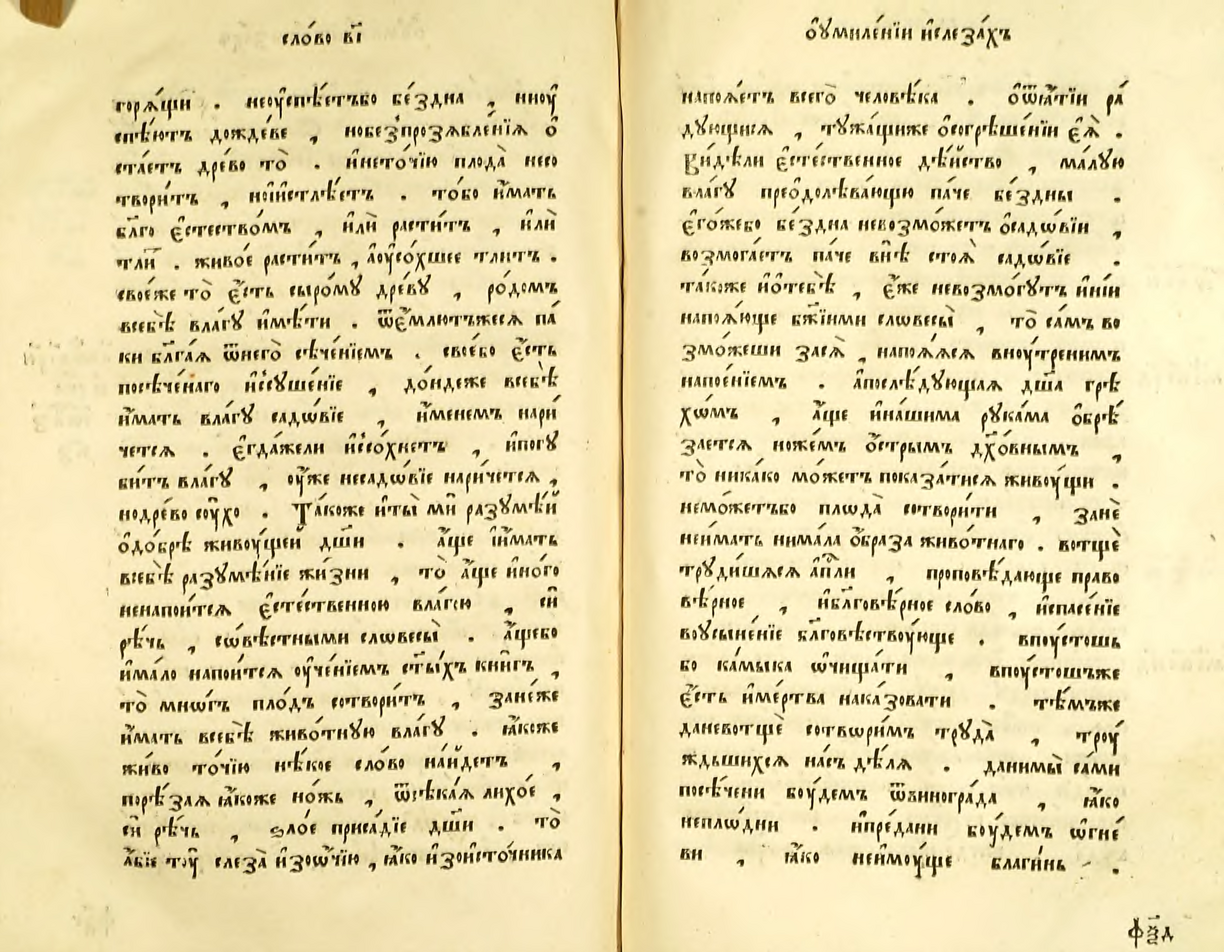 сло́во в҃і
горѧ́щи . неоуспѣ́етъбо бе́здна , ниоу
спѣ́ютъ дожде́ве , нобезпрозѧбле́нїѧ ѻ҆
ста́етъ дре́во то̀ . и҆нето́чїю плода̀ несо
твори́тъ , нои҆истлѣ́етъ . то́бо и҆́мать
бл҃го є҆стество́мъ , и҆лѝ расти́тъ , и҆лѝ
тли́ . живо́е расти́тъ , аоусо́хшее тли́тъ .
свое́же то̀ є҆́сть сыро́мꙋ дре́вꙋ , ро́домъ
всебѣ̀ вла́гꙋ и҆мѣ́ти . ѿе́млютъжесѧ па́
ки бл҃га́ѧ ѿнего̀ сѣче́нїемъ . свое́бо є҆́сть
посѣче́наго и҆ссꙋше́нїе , до́ндеже всебѣ̀
и҆́мать вла́гꙋ садѡ́вїе , и҆́менемъ нари
че́тсѧ . є҆гда́жели и҆ссо́хнетъ , и҆погꙋ
би́тъ вла́гꙋ , оу҆́же несадѡ́вїе нариче́тсѧ ,
нодре́во соу́хо . Та́коже и҆ты̀ мѝ разꙋмѣ́й
ѻ҆до́брѣ живоу́щей дш҃и . а҆́ще и҆́мать
всебѣ̀ разꙋмѣ́нїе жи́зни , то̀ а҆́ще и҆но́го
ненапои́тсѧ є҆сте́ственною вла́гою , си́
рѣчь , сѡвѣ́стными словесы̀ . а҆́щебо
и҆ма́ло напои́тсѧ оу҆че́нїемъ ст҃ы́хъ кни́гъ ,
то̀ мно́гъ пло́дъ сотвори́тъ , зане́же
и҆́мать всебѣ̀ живо́тнꙋю вла́гꙋ . ꙗ҆́коже
живо то́чїю нѣ́кое сло́во на́йдетъ ,
порѣ́заѧ ꙗ҆́коже но́жь , ѿсѣка́ѧ лихо́е ,
си́ рѣчь , ѕло́е приса́дїе дш҃и . то̀
а҆́бїе тоу̀ слеза̀ и҆зоо́чїю , ꙗ҆́ко и҆зои҆сто́чника
ѻ҆оумиле́нїи и҆слеза́хъ
напоѧ́етъ всего̀ человѣ́ка . ѻ҆ѿѧ́тїи ра́
дꙋющисѧ , тꙋжа́щиже ѻ҆согрѣше́нїи є҆ѧ̀ .
Ви́дѣли є҆сте́ственное дѣ́йство , ма́лꙋю
вла́гꙋ преодолѣва́ющꙋ па́че бе́здны .
є҆го́жебо бе́здна невозмо́жетъ ѻ҆садѡ́вїи ,
возмога́етъ па́че внѣ̀ стоѧ̀ садѡ́вїе .
та́коже и҆ѻ҆тебѣ̀ , є҆́же невозмо́гꙋтъ и҆ні́и
напоѧ́юще бж҃їими словесы̀ , то̀ са́мъ во
змо́жеши засѧ̀ , напоѧ́ѧсѧ внꙋ́тренимъ
напое́нїемъ . а҆послѣ́дꙋющаѧ дш҃а грѣ
хѡ́мъ , а҆́ще и҆на́шима рꙋка́ма ѻ҆брѣ́
зается ноже́мъ ѻ҆́стрымъ дх҃о́внымъ ,
то̀ никако мо́жетъ показа́тисѧ живоу́щи .
немо́жетъбо плѡда̀ сотвори́ти , занѐ
неи҆́мать нима́ла ѻ҆́браза живо́тнаго . вотщѐ
трꙋди́шасѧ а҆пⷭ҇ли , проповѣ́дающе право
вѣ́рное , и҆бл҃говѣ́рное сло́во , и҆спасе́нїе
воусыне́нїе бл҃говѣствоу́юще . впоу́стошь
бо ка́мыка ѡ҆чища́ти , впоу́стошъже
є҆́сть и҆ме́ртва наказовати . тѣ́мъже
даневотщѐ сотвори́мъ трꙋда̀ , троу́
ждьшихсѧ на́съ дѣ́лѧ . данимы̀ са́ми
посѣ́чени боу́демъ ѿвиногра́да , ꙗ҆́ко
непло́дни . и҆пре́дани боу́демъ ѻ҆гне́
ви , ꙗ҆́ко неи҆моу́ще благи́нь .
ф҃ѯд